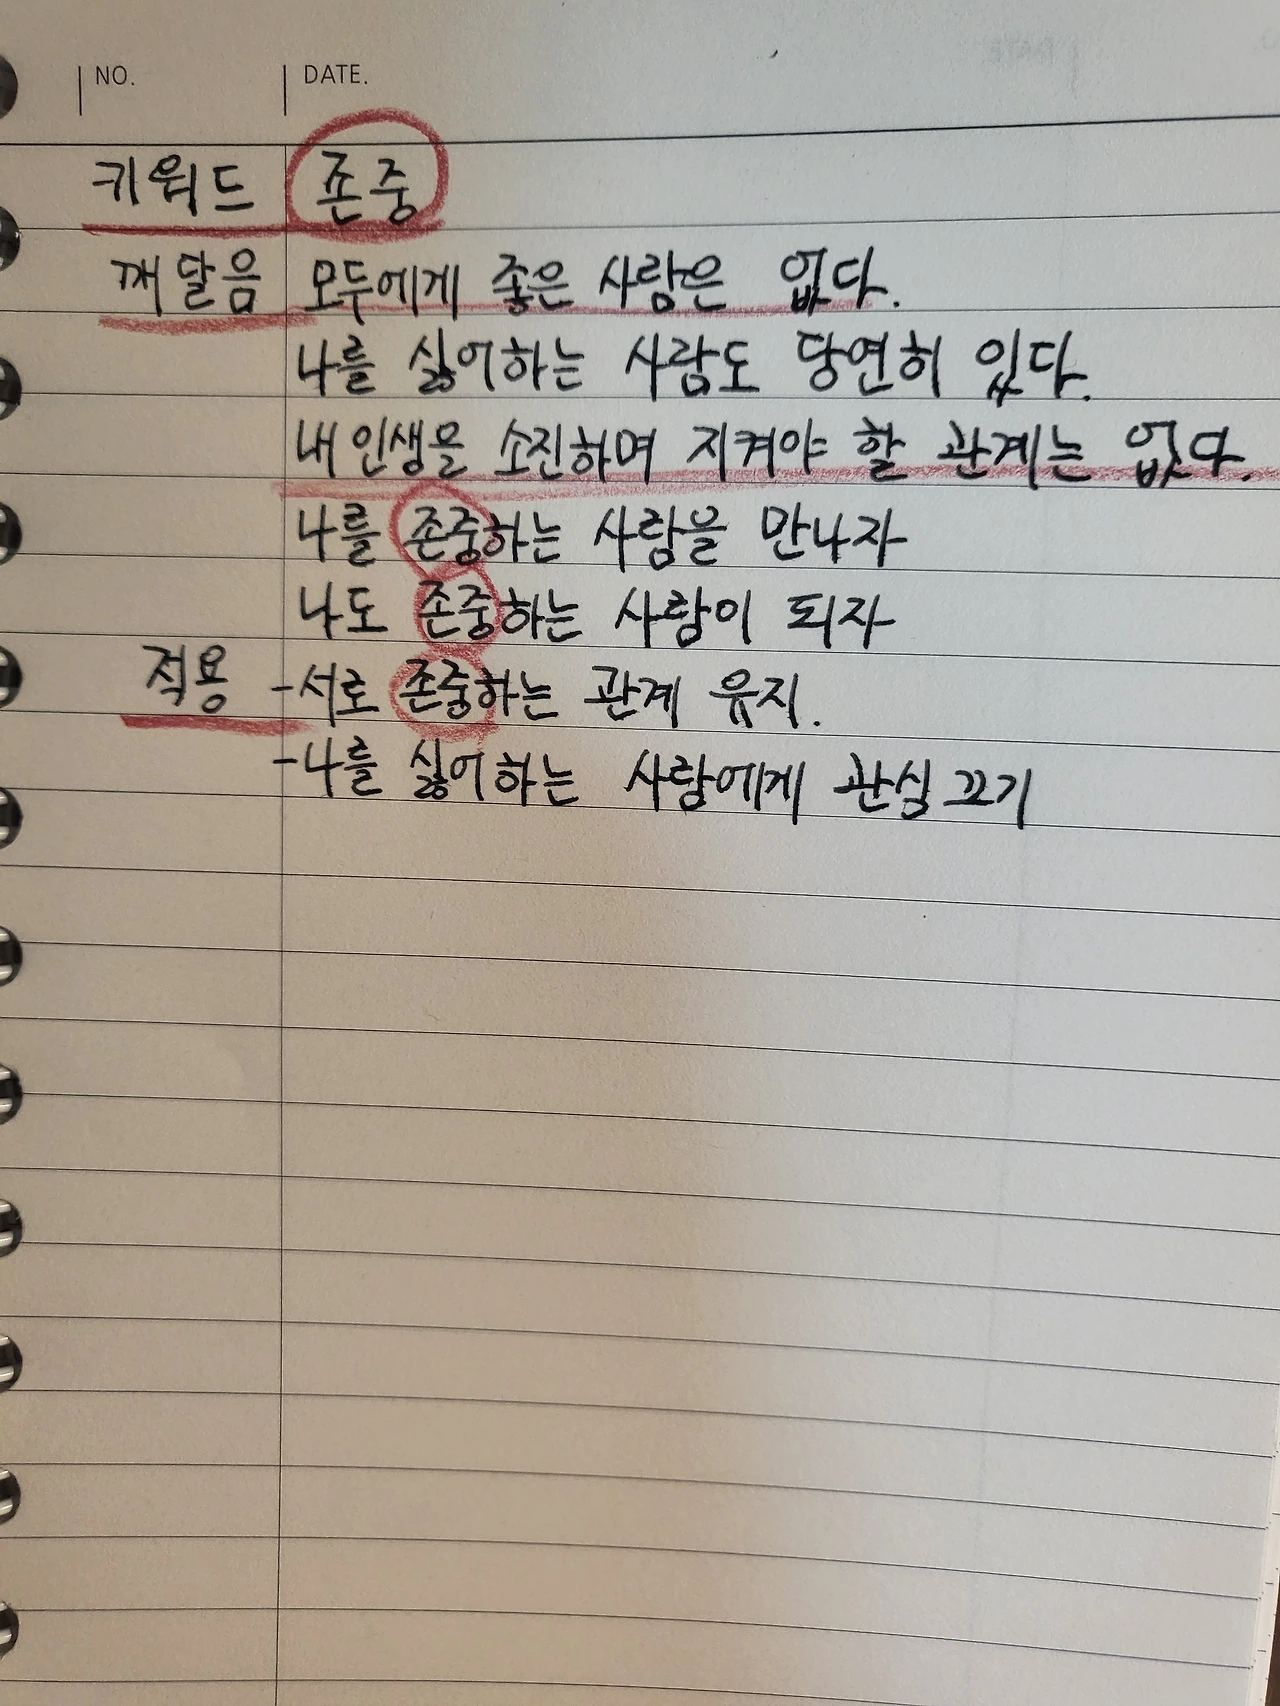 NO. DATE.
키워드 존중
깨달음 모두에게 좋은 사람은 없다.
나를 싫어하는 사람도 당연히 있다.
내 인생을 소진하며 지켜야 할 관계는 없다.
나를 존중하는 사람을 만나자
나도 존중하는 사람이 되자
적용 -서로 존중하는 관계 유지.
-나를 싫어하는 사람에게 관심 끄기